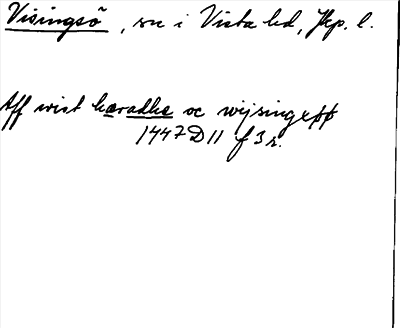 Visingsö, sn i Vista hd, Jkp. l.
Aff wist hæradhe oc wijsingxøø
1447 D 11 f 3 r.